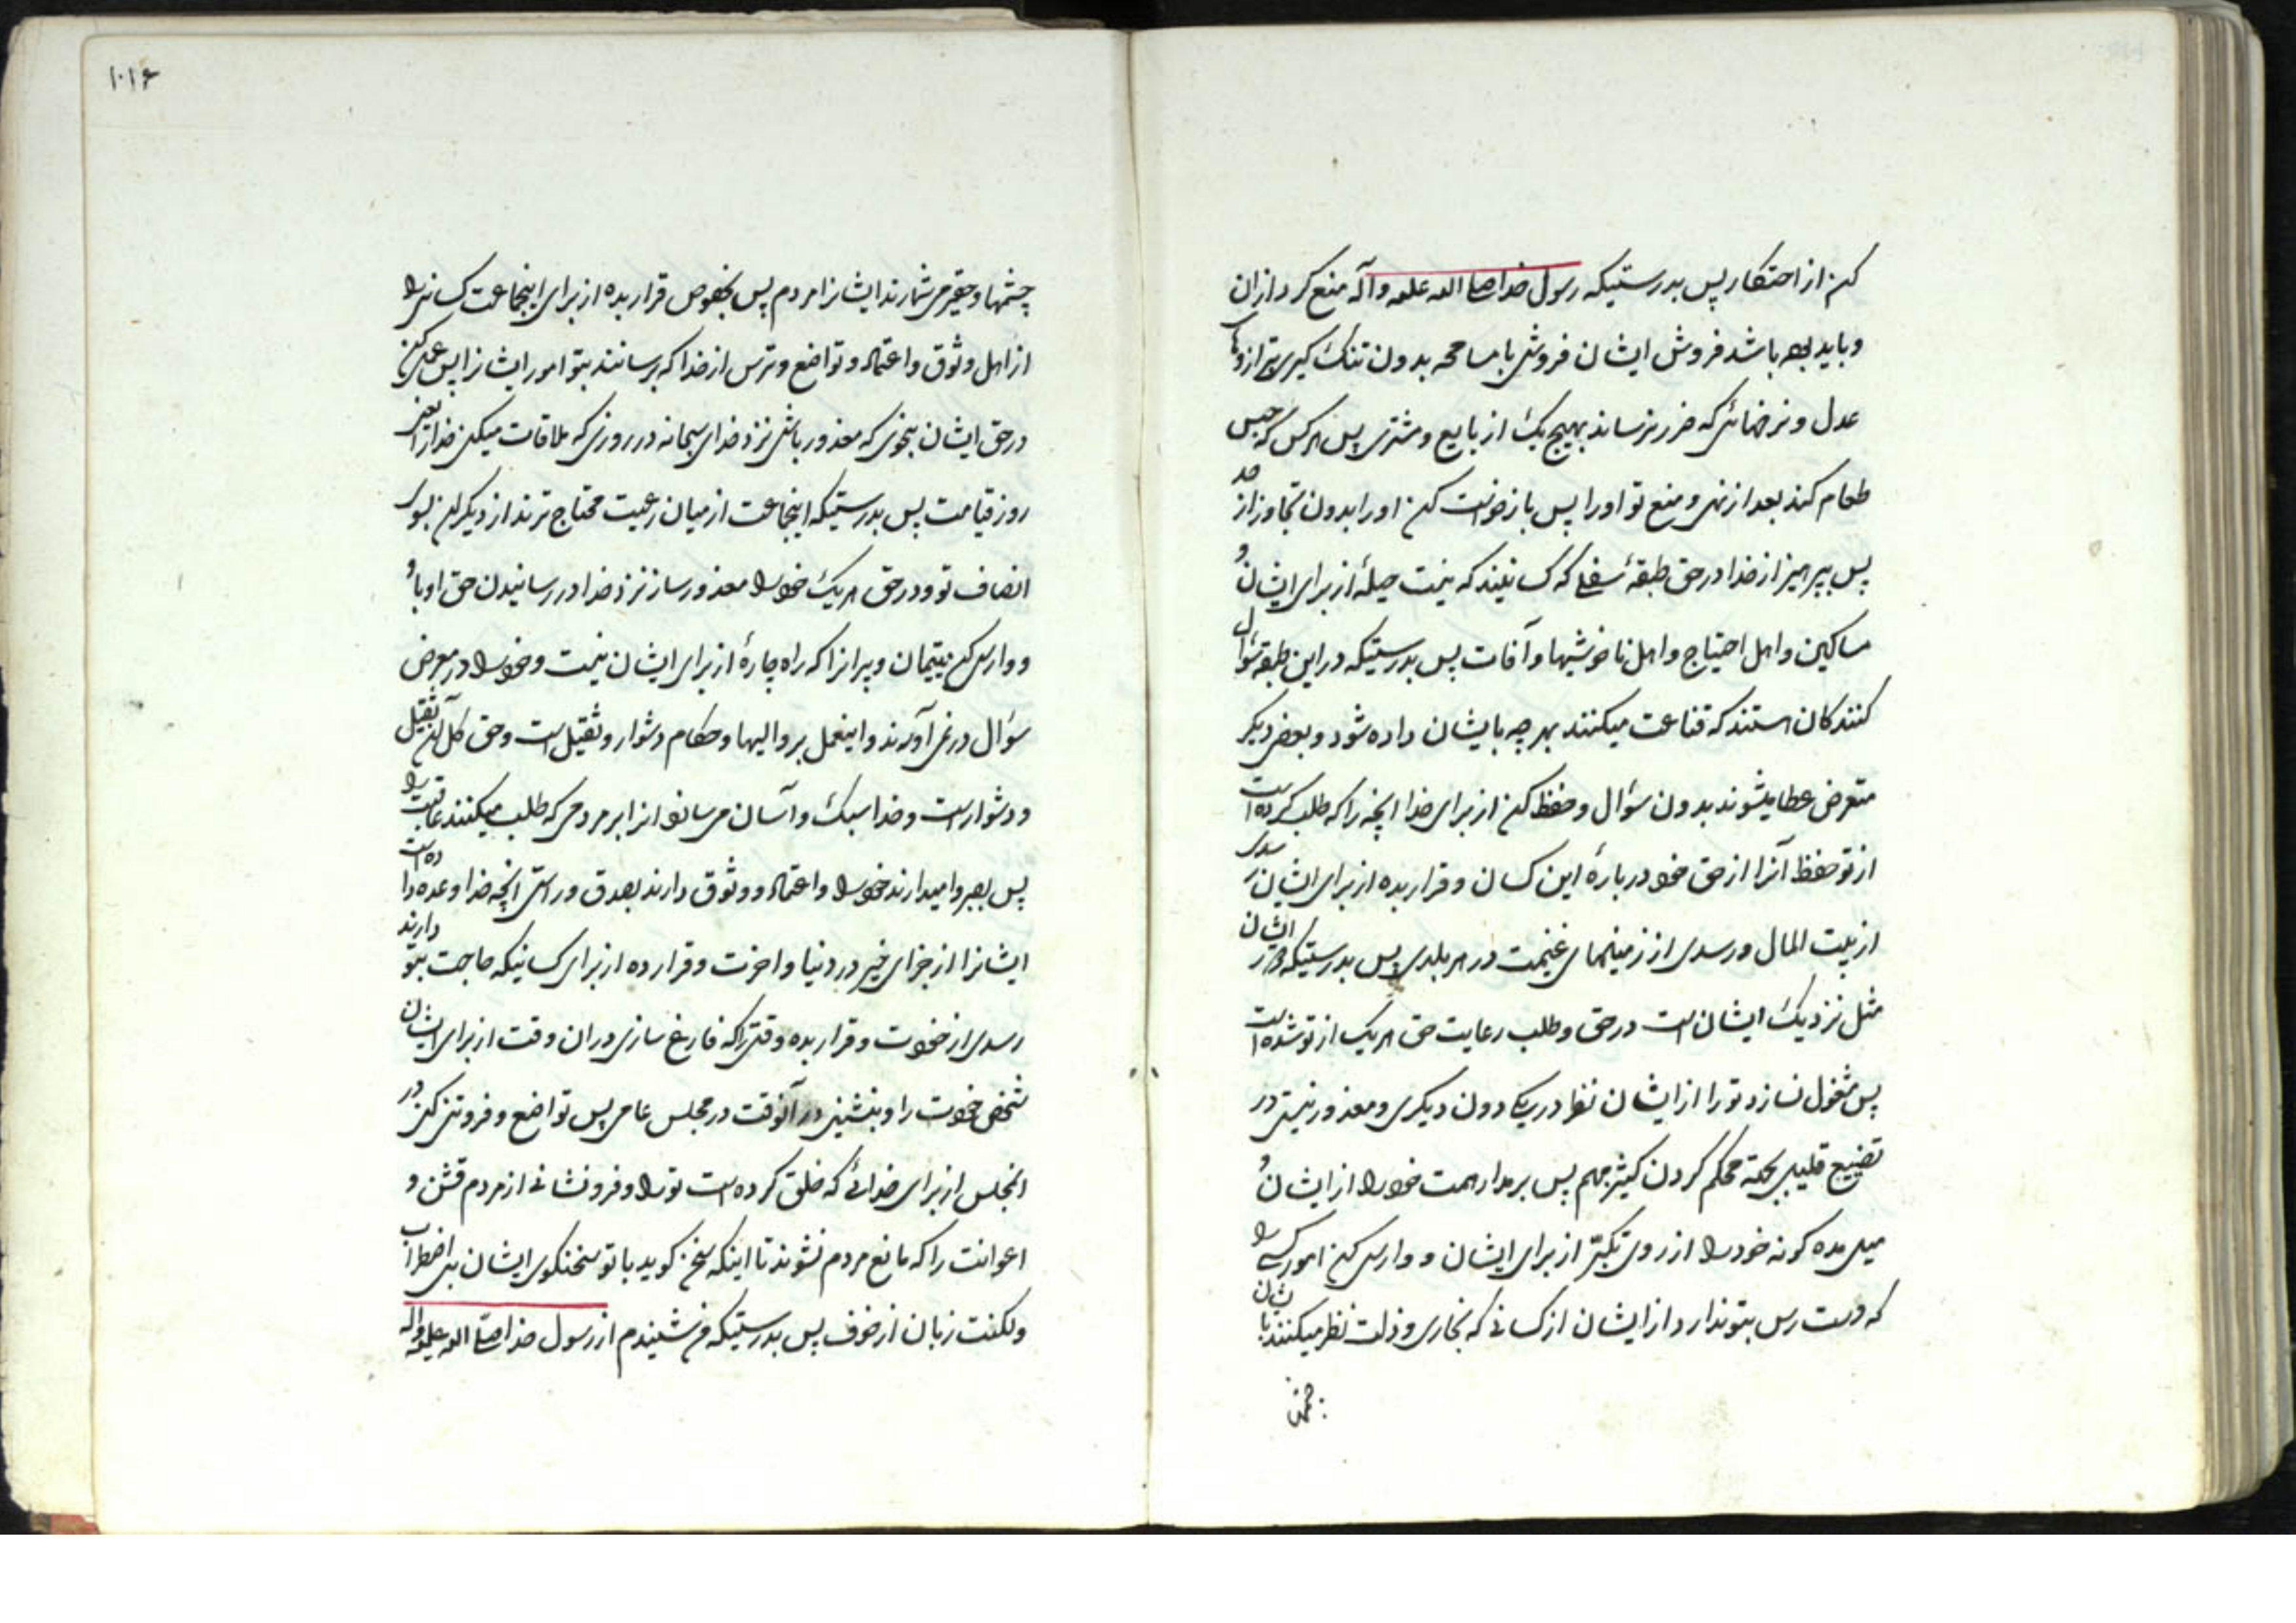 کن از احتکار پس بدرستیکه رسول خدا صلی الله علیه وآله منع کرد ازان
و باید بوده باشد فروش ایشان فروشی با مسامحه بدون تنگ گیری بترازوی
عدل و نرخهائی که ضرر نرساند بهیچ یک از بایع و مشتری پس هرکس که حبس
طعام کند بعد از نهی و منع تو اورا پس بازخواست کن اورا بدون تجاوز از حد
پس بپرهیز از خدا در حق طبقهٔ سفلی که کسانیند که نیست حیلهٔ از برای ایشان و
مساکین و اهل احتیاج و اهل ناخوشیها و آفات پس بدرستیکه در این طبقه سؤال
کنندکان هستند که قناعت میکنند بهر چه بایشان داده شود و بعضی دیگر
متعرض عطا میشوند بدون سؤال و حفظ کن از برای خدا انچه را که طلب کرده است
از تو حفظ آنرا از حق خود در بارهٔ این کسان و قرار بده از برای ایشان رسدی
از بیت المال و رسدی از زمینهای غنیمت در هر بلدی پس بدرستیکه دور ایشان
مثل نزدیک ایشان است در حق و طلب رعایت حق هر یک از تو شده است
پس مشغول نسازد تو را از ایشان نظر در یکی دون دیگری و معذور نیستی در
تضییع قلیل بجهة محکم کردن کثیر مهم پس برمدار همت خود را از ایشان و
میل مده کونه خود را از روی تکبّر از برای ایشان و وارسی کن امور کسی را
که دست رس بتو ندارد از ایشان از کسانی که بخاری و ذلت نظر میکنند بایشان
چشمها
۱۰۱۶
چشمها و حقیر میشمارند ایشانرا مردم پس بخصوص قرار بده از برای اینجماعت کسانی را
از اهل وثوق و اعتماد و تواضع و ترس از خدا که برسانند بتو امور ایشانرا پس عمل کن
در حق ایشان بنحوی که معذور باشی نزد خدای سبحانه در روزی که ملاقات میکنی خدا را یعنی
روز قیامت پس بدرستیکه اینجماعت از میان رعیت محتاج ترند از دیگران بسوی
انصاف تو و در حق هر یک خود را معذور ساز نزد خدا در رسانیدن حق او باو
و وارسی کن یتیمان و پیرانرا که راه چارهٔ از برای ایشان نیست و خود را در معرض
سؤال در نمی آورند و اینعمل بر والیها و حکام دشوار و ثقیل است و حق کل آن ثقیل
و دشوار است و خدا سبک و آسان میسازد انرا بر مردمی که طلب میکنند عاقبت را
پس بصبر وامیدارند خود را و اعتماد و وثوق دارند بصدق و راستی انچه خدا وعده داده است
ایشانرا از جزای خیر در دنیا و اخرت و قرار ده از برای کسانیکه حاجت بتو دارند
رسدی از خودت و قرار بده وقتی را که فارغ سازی در ان وقت از برای ایشان
شخص خودت را و بنشینی در آنوقت در مجلس عامی پس تواضع و فروتنی کن در
انمجلس از برای خدائی که خلق کرده است تو را و فرو نشانی از مردم قشن و
اعوانت را که مانع مردم نشوند تا اینکه سخن کوید با تو سخنکوی ایشان بی اضطراب
و لکنت زبان از خوف پس بدرستیکه من شنیدم از رسول خدا صلّی الله علیه واله